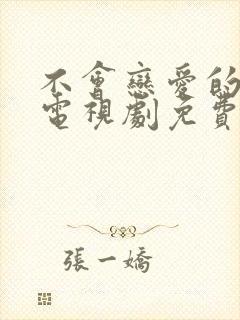 不會戀愛的
電視劇免費
張一嬌